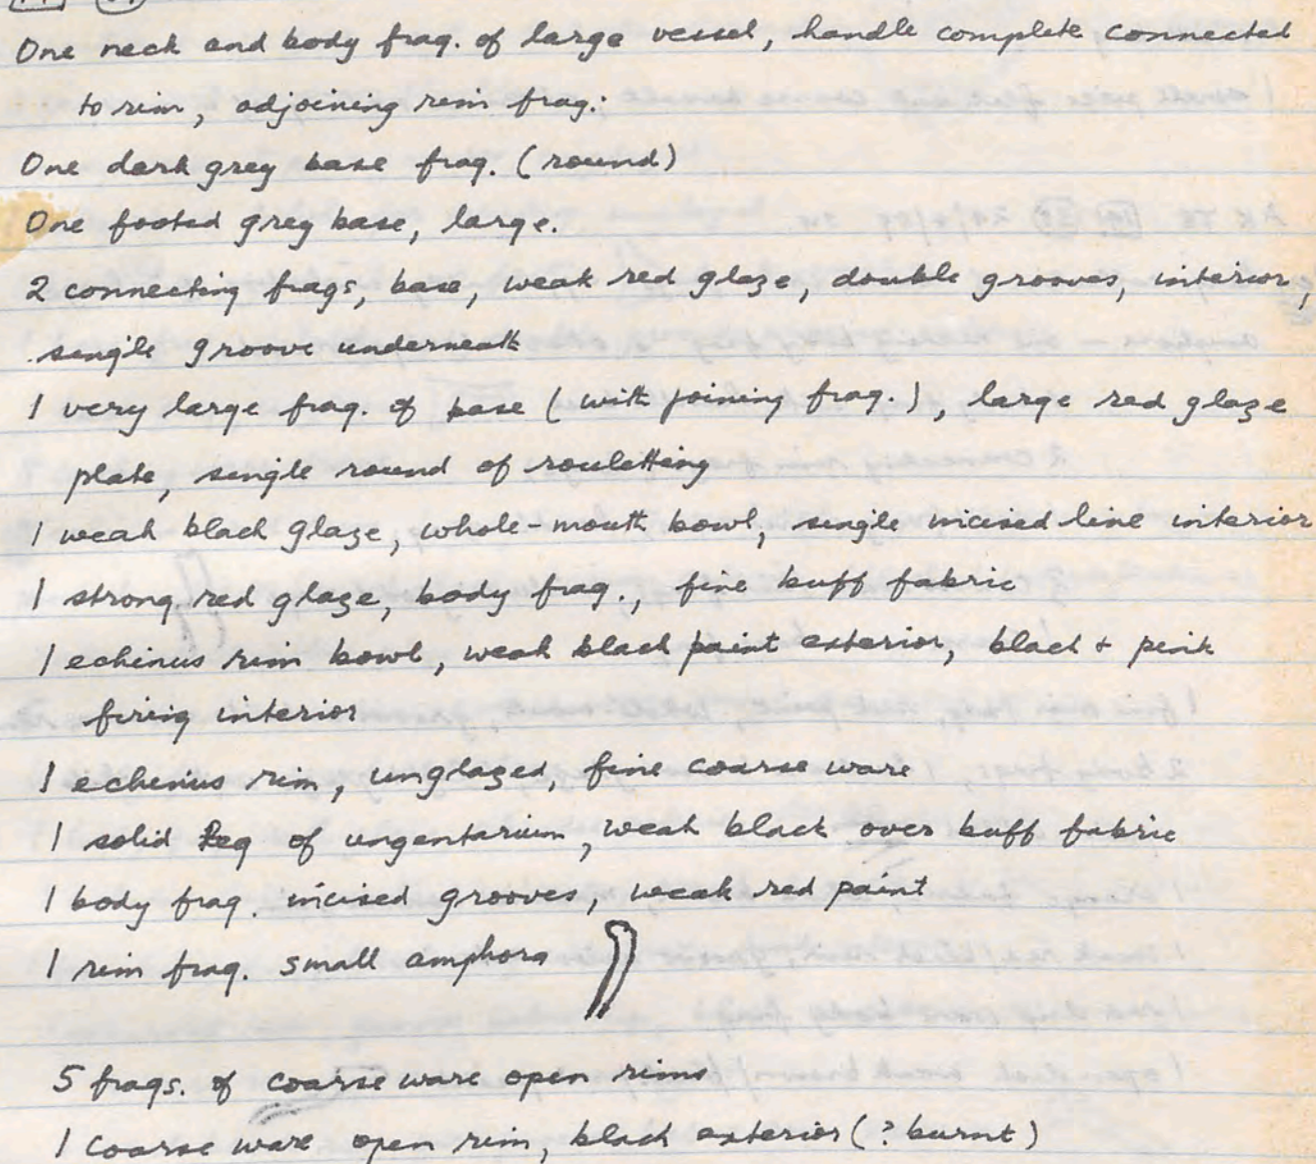 One neck and body frag. of large vessel, handle complete connected
to rim, adjoining rim frag:
One dark grey base frag. (round)
One footed grey base, large.
2 connecting frags, base, weak red glaze, double grooves, interior,
single groove underneath
1 very large frag. of base (with joining frag.), large red glaze
plate, single round of rouletting
1 weak black glaze, whole-mouth bowl, single incised line interior
1 strong red glaze, body frag., fine buff fabric
1 echinus rim bowl, weak black paint exterior, black + pink
firing interior
1 echinus rim, unglazed, fine coarse ware
1 solid Peg of ungentarium, weak black over buff fabric
1 body frag. incised grooves, weak red paint
1 rim frag. small amphora
5 frags. of coarse ware open rims
1 coarse ware open rim, black exterior (? burnt)